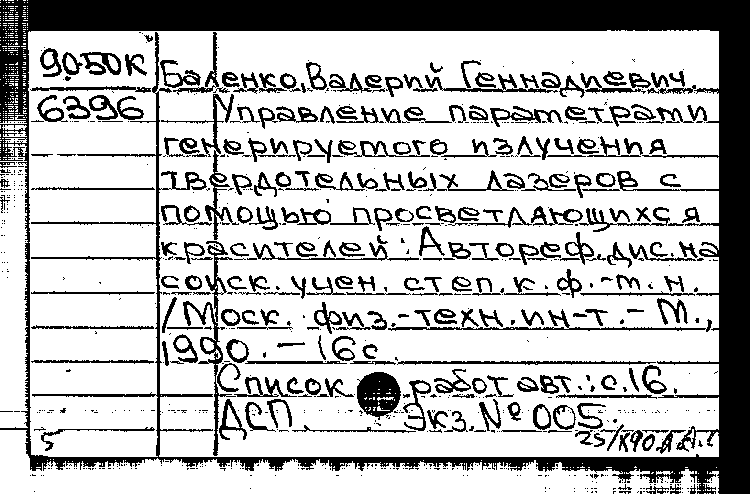 90-50К Баленко, Валерий Геннадиевич.
6396 Управление параметрами
генерируемого излучения
твердотельных лазеров с
помощью просветляющихся
красителей : Автореф. дис. на
соиск. учен. степ. к. ф.-т. н.
/Моск. физ.-техн. ин-т. – М.,
1990. – 16 с.
Список работ авт.: с. 16.
ДСП. Экз. № 005.
5